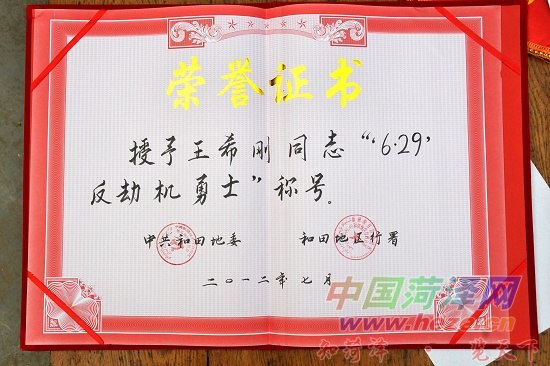 荣誉证书
授予王希刚同志“‘6·29’
反劫机勇士”称号。
中共和田地委 和田地区行署
二〇一二年七月
中国菏泽网
www.heze.cn
知菏泽 · 览天下